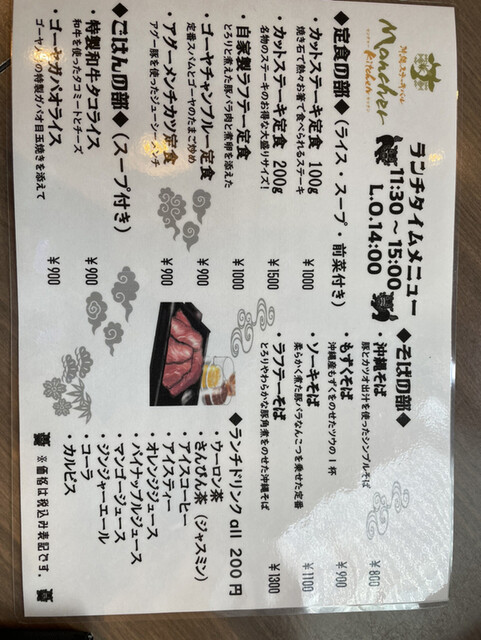 Mancher
Kitchen
ランチタイムメニュー
11:30 ～ 15:00
L.O.14:00
◆定食の部◆（ライス・スープ・前菜付き）
・カットステーキ定食 100g
焼き石で熱々お箸で食べられるステーキ
¥1000
・カットステーキ定食 200g
名物のステーキのお得な大盛りサイズ！
¥1500
・自家製ラフテー定食
とろりと煮えた豚バラ肉と煮卵を添えた
¥1000
・ゴーヤチャンプルー定食
定番スパムとゴーヤのたまご炒め
¥900
・アグーメンチカツ定食
アグー豚を使ったジューシーメンチ
¥900
◆ごはんの部◆（スープ付き）
・特製和牛タコライス
和牛を使ったタコミートとチーズ
¥900
・ゴーヤガパオライス
ゴーヤ入りの特製ガパオ目玉焼きを添えて
¥900
◆そばの部◆
・沖縄そば
豚とカツオ出汁を使ったシンプルそば
¥800
・もずくそば
沖縄産もずくをのせたツウの1杯
¥900
・ソーキそば
柔らかく煮た豚バラなんこつを乗せた定番
¥1100
・ラフテーそば
とろりやわらかな豚角煮をのせた沖縄そば
¥1300
◆ランチドリンク all 200円
・ウーロン茶
・さんぴん茶（ジャスミン）
・アイスコーヒー
・アイスティー
・オレンジジュース
・パイナップルジュース
・マンゴージュース
・ジンジャーエール
・コーラ
・カルピス
※価格は税込み表記です。